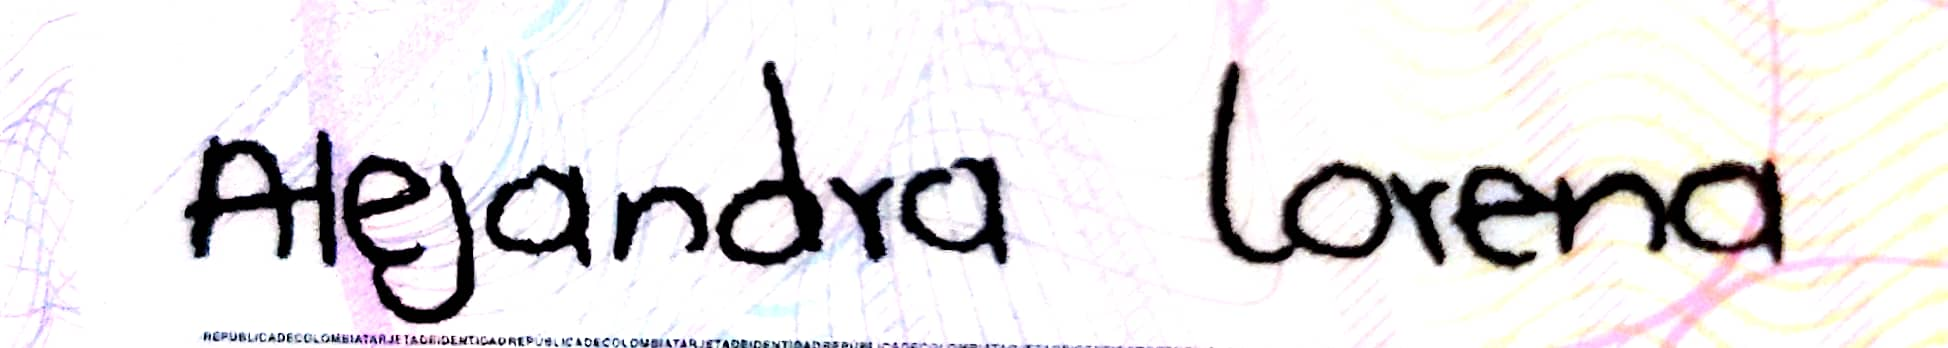 Alejandra Lorena
REPUBLICADECOLOMBIATARJETADEIDENTIDADREPUBLICADECOLOMBIATARJETADEIDENTIDADREPUBLICADECOLOMBIATARJETADEIDENTIDAD